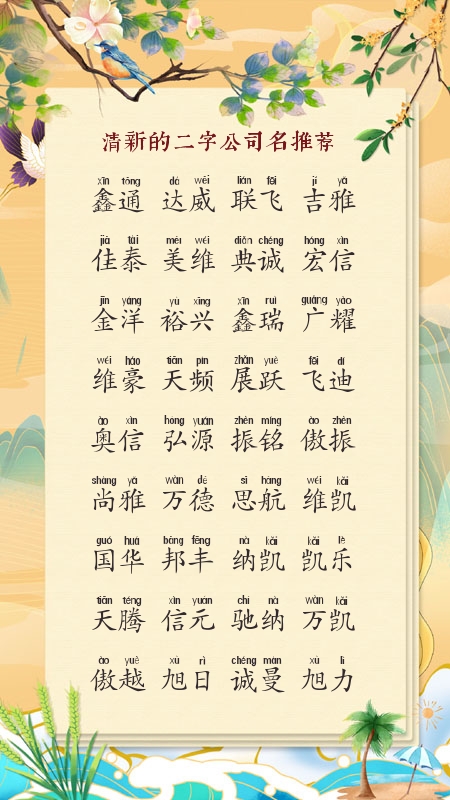 清新的二字公司名推荐
xīn tōng dá wēi lián fēi jí yǎ
鑫通 达威 联飞 吉雅
jiā tài měi wéi diǎn chéng hóng xìn
佳泰 美维 典诚 宏信
jīn yáng yù xīng xīn ruì guǎng yào
金洋 裕兴 鑫瑞 广耀
wéi háo tiān pín zhǎn yuè fēi dí
维豪 天频 展跃 飞迪
ào xìn hóng yuán zhèn míng ào zhèn
奥信 弘源 振铭 傲振
shàng yǎ wàn dé sī háng wéi kǎi
尚雅 万德 思航 维凯
guó huá bāng fēng nà kǎi kǎi lè
国华 邦丰 纳凯 凯乐
tiān téng xìn yuán chí nà wàn kǎi
天腾 信元 驰纳 万凯
ào yuè xù rì chéng màn xù lì
傲越 旭日 诚曼 旭力